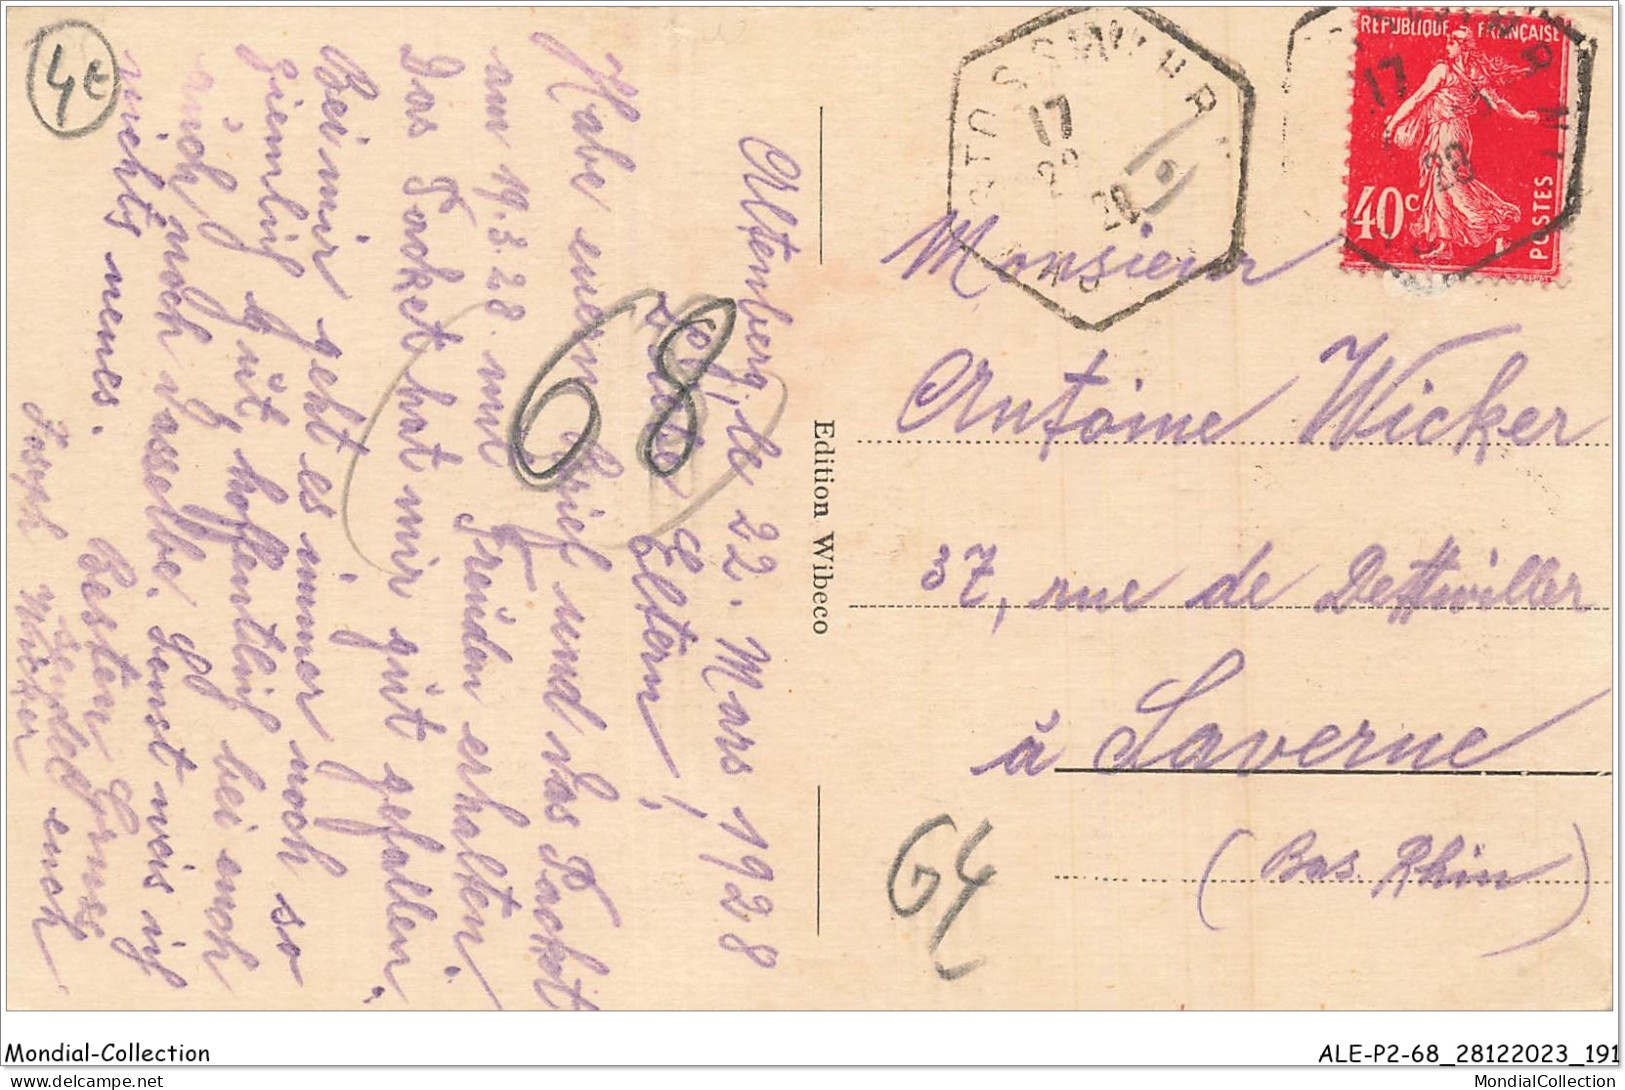 Altenberg, le 22. Mars 1928
Liebe Eltern!
Habe euern Brief und das Packet
am 19.3.28 mit Freuden erhalten.
Das Packet hat mir gut gefallen.
Bei mir geht es immer noch so
ziemlich gut, hoffentlich bei euch
auch noch dasselbe. Sonst weis ich
nichts neues.
Besten Gruss
sendet euch
Joseph Wicker
Edition Wibeco
RÉPUBLIQUE FRANÇAISE
40c
POSTES
17
22
28
17
28
Monsieur
Antoine Wicker
37, rue de Dettwiller
à Saverne
(Bas. Rhin)
68
G4
4€
Mondial-Collection
ALE-P2-68_28122023_191
delcampe.net
MondialCollection